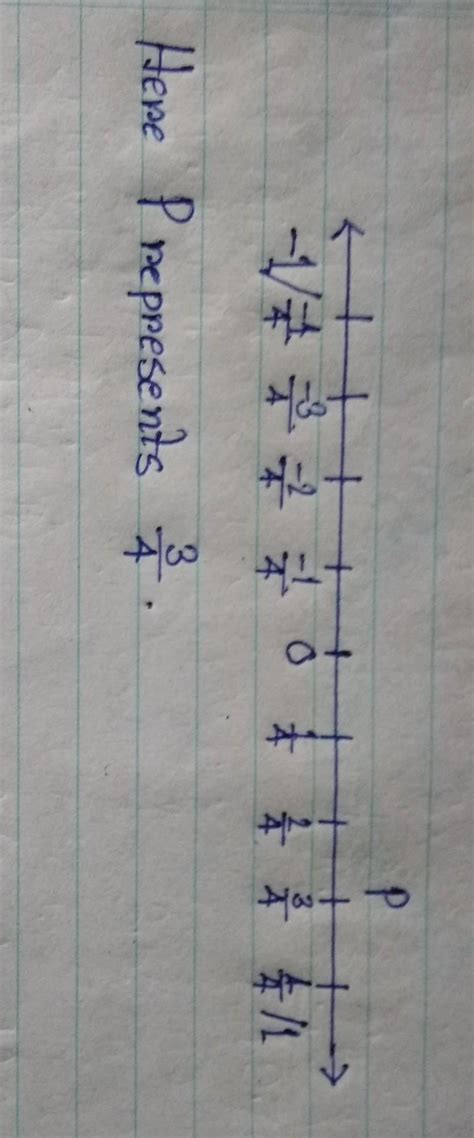 P
-1/-4/4 -3/4 -2/4 -1/4 0 1/4 2/4 3/4 4/4/1
Here P represents 3/4.